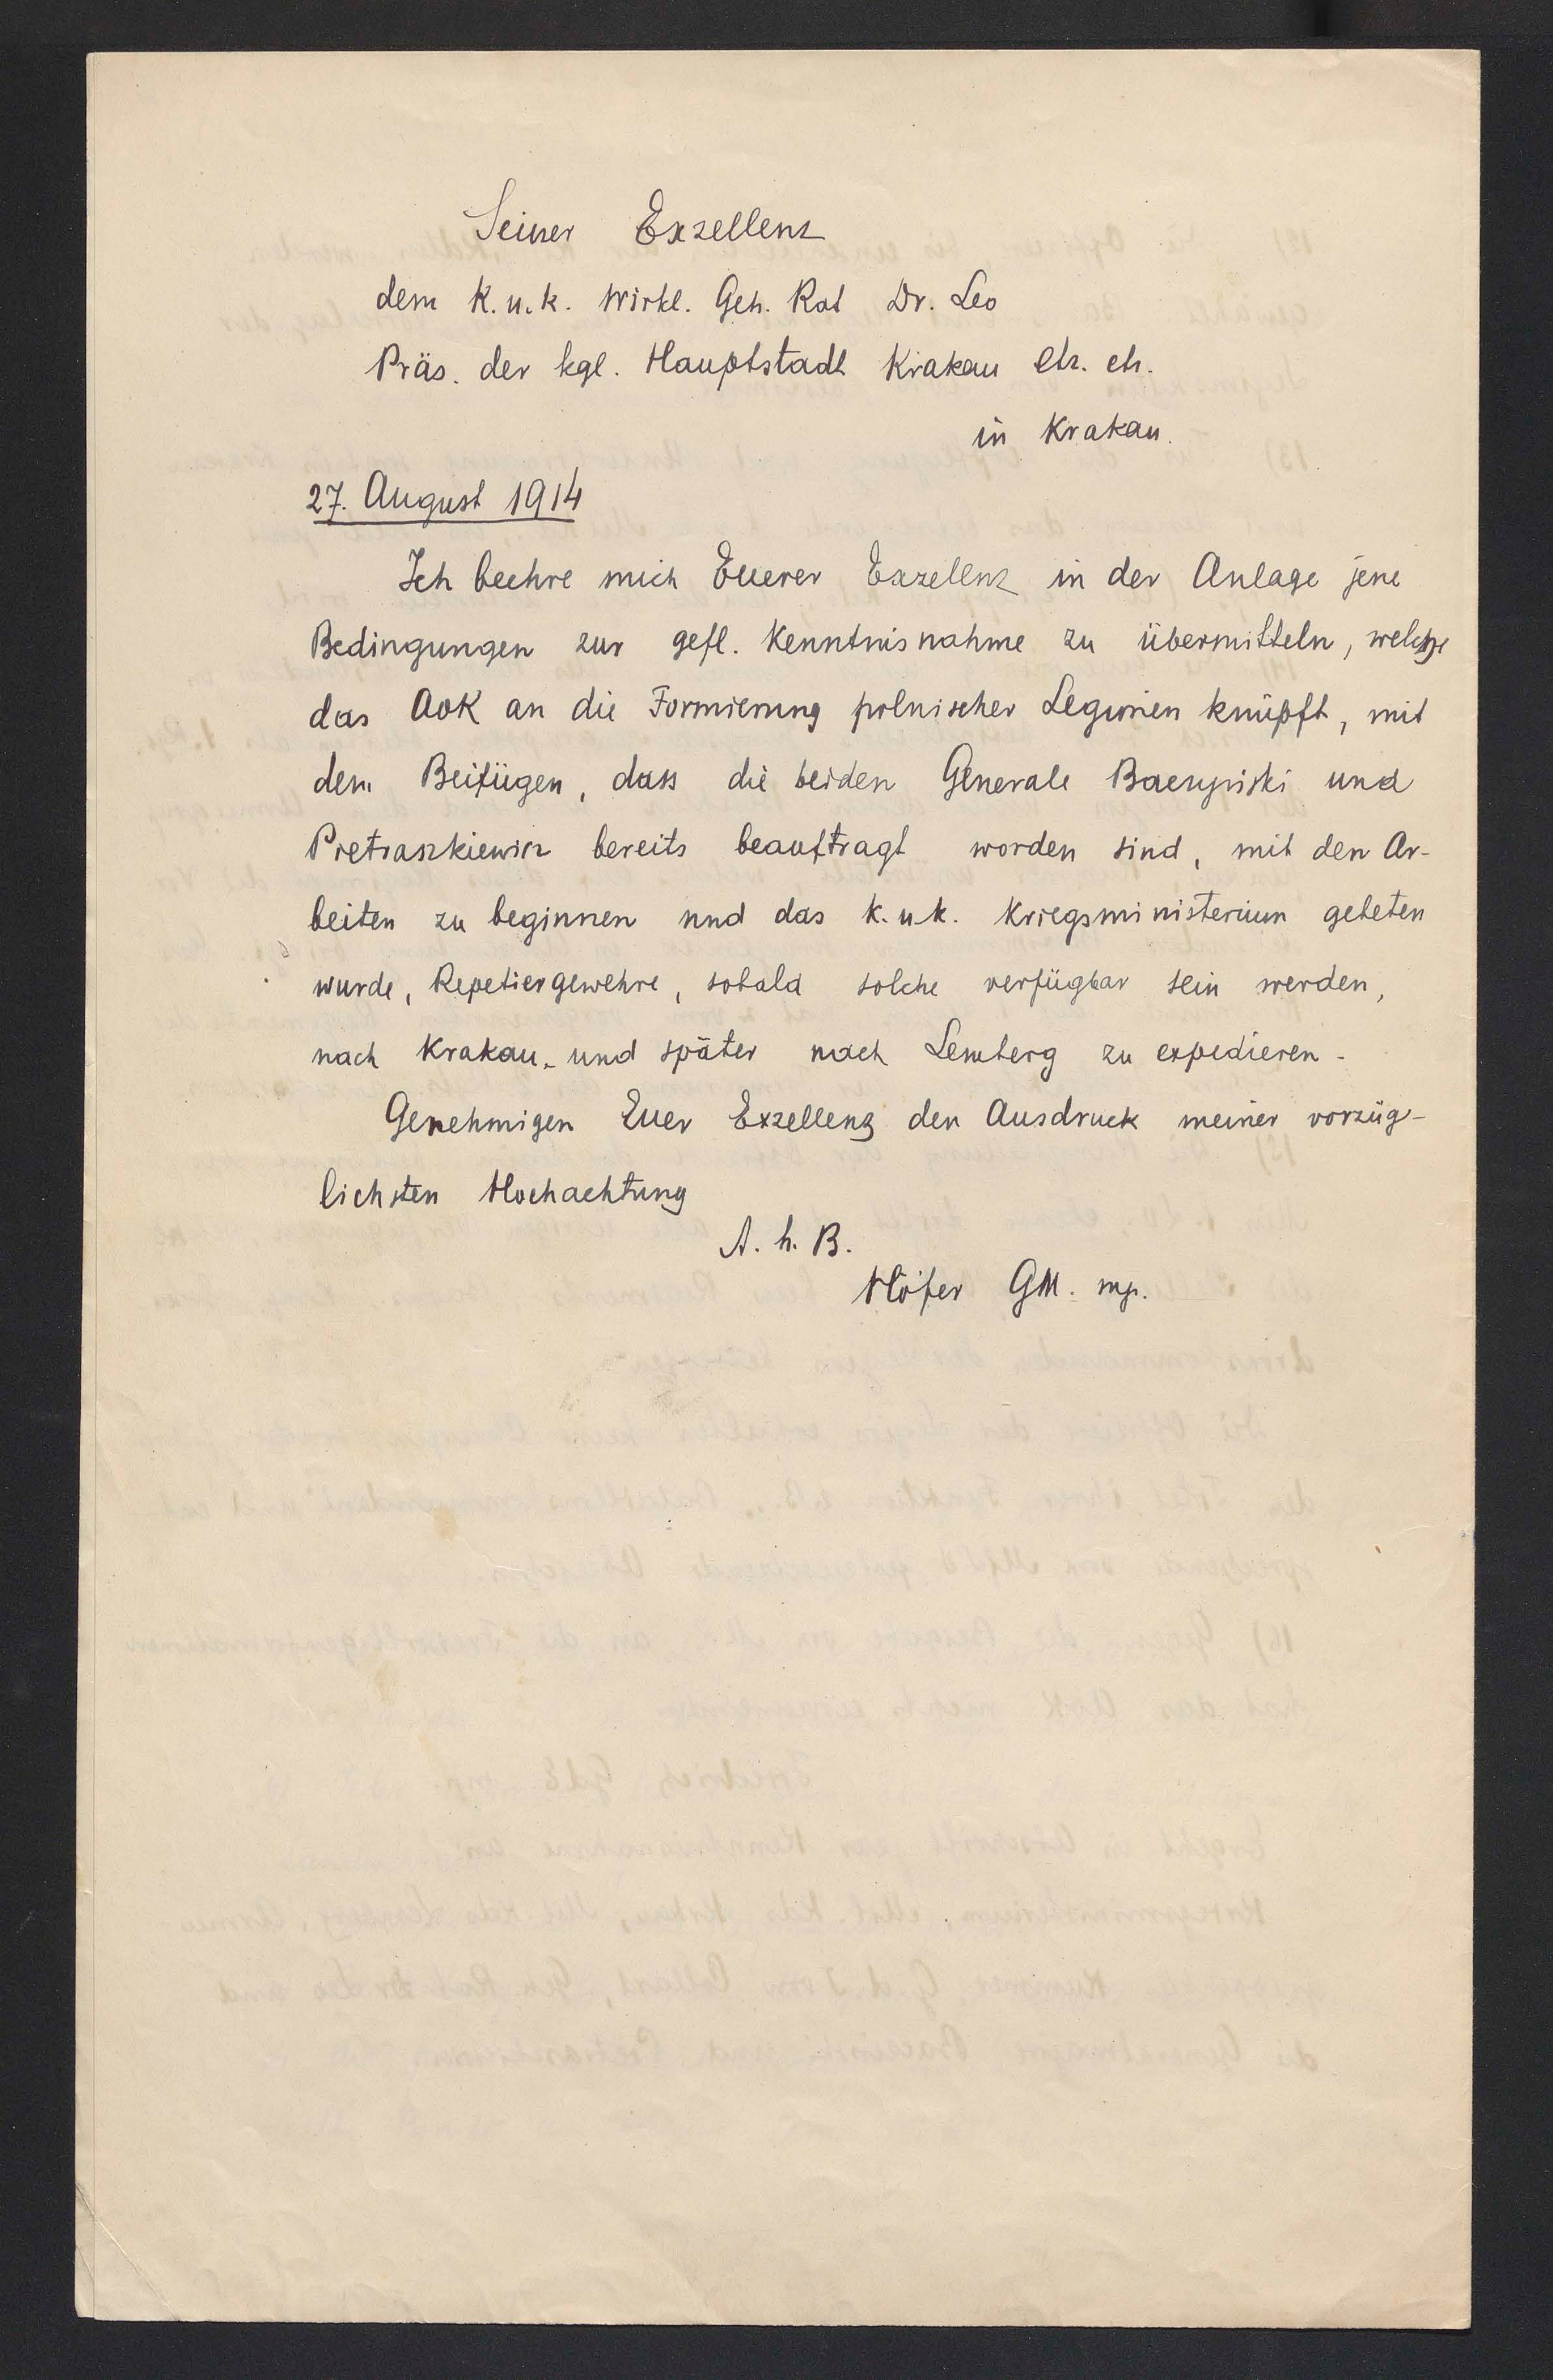 Seiner Exzellenz
dem K. u. k. Wirkl. Geh. Rat Dr. Leo
Präs. der kgl. Hauptstadt Krakau etz. etz.
in Krakau.
27. August 1914
Ich beehre mich Euerer Exzellenz in der Anlage jene
Bedingungen zur gefl. Kenntnisnahme zu übermitteln, welche
das AOK an die Formierung polnischer Legionen knüpft, mit
dem Beifügen, dass die beiden Generale Baczyński und
Pietraszkiewicz bereits beauftragt worden sind, mit den Ar-
beiten zu beginnen und das k. u. k. Kriegsministerium gebeten
wurde, Repetiergewehre, sobald solche verfügbar sein werden,
nach Krakau, und später nach Lemberg zu expedieren.
Genehmigen Euer Exzellenz den Ausdruck meiner vorzüg-
lichsten Hochachtung
A. h. B.
Höfer GM. mp.